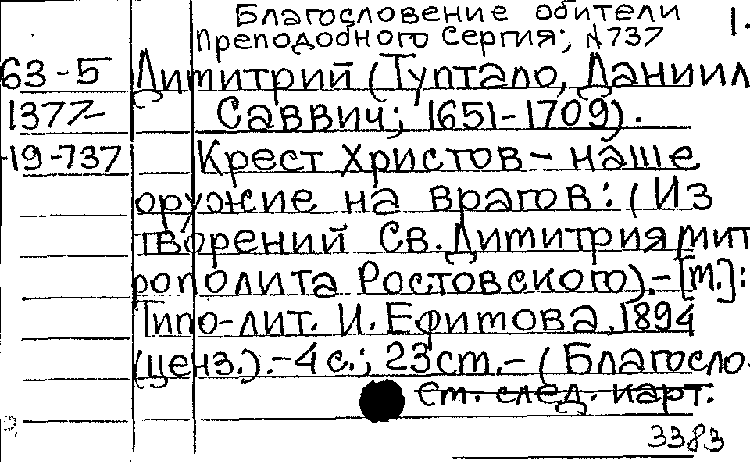 Благословение обители 1.
Преподобного Сергия; №737
63-5 Димитрий (Туптало, Даниил
1377- Саввич; 1651-1709).
-19-737 Крест Христов - наше
оружие на врагов: (Из
творений Св. Димитрия мит
рополита Ростовского).-[М.]:
Типо-лит. И. Ефимова, 1894
(ценз.).-4 с.; 23 см.- (Благосло-
См. след. карт.
3383